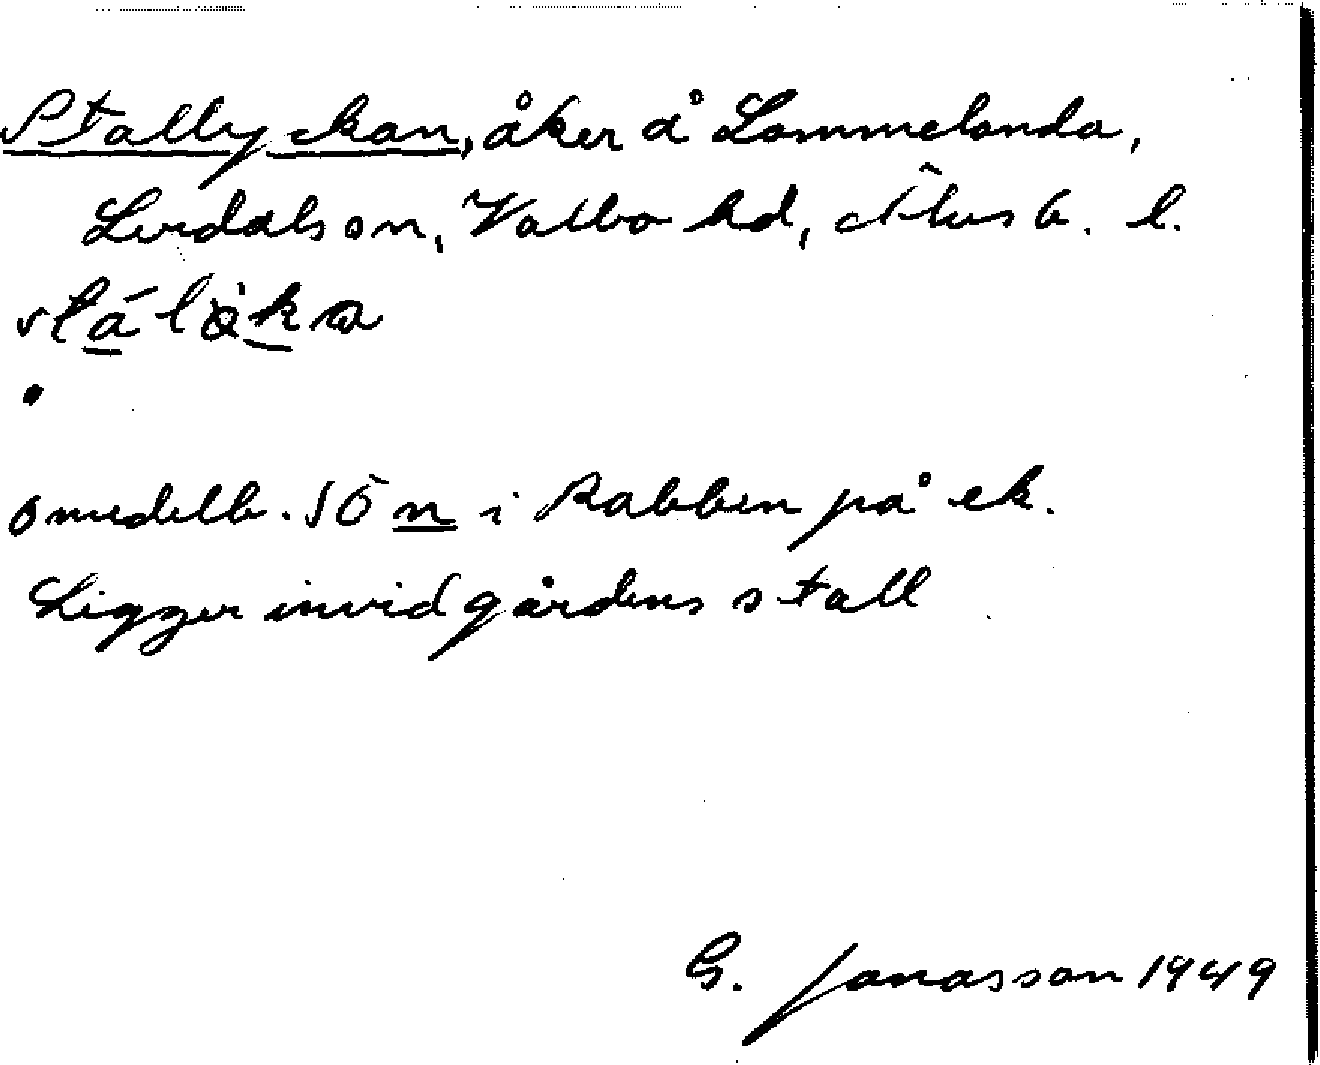 Stallyckan, åker å Lommelanda,
Lerdals sn, Valbo hd, Älvsb. l.
stálö̀ka
•
omedelb. SÖ n i Rabben på ek.
Ligger invid gårdens stall
G. Jonasson 1949